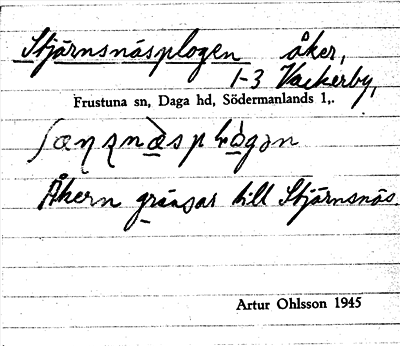 Stjärnsnäsplogen åker,
1-3 Vackerby,
Frustuna sn, Daga hd, Södermanlands l,.
Åkern gränsar till Stjärnsnäs.
Artur Ohlsson 1945